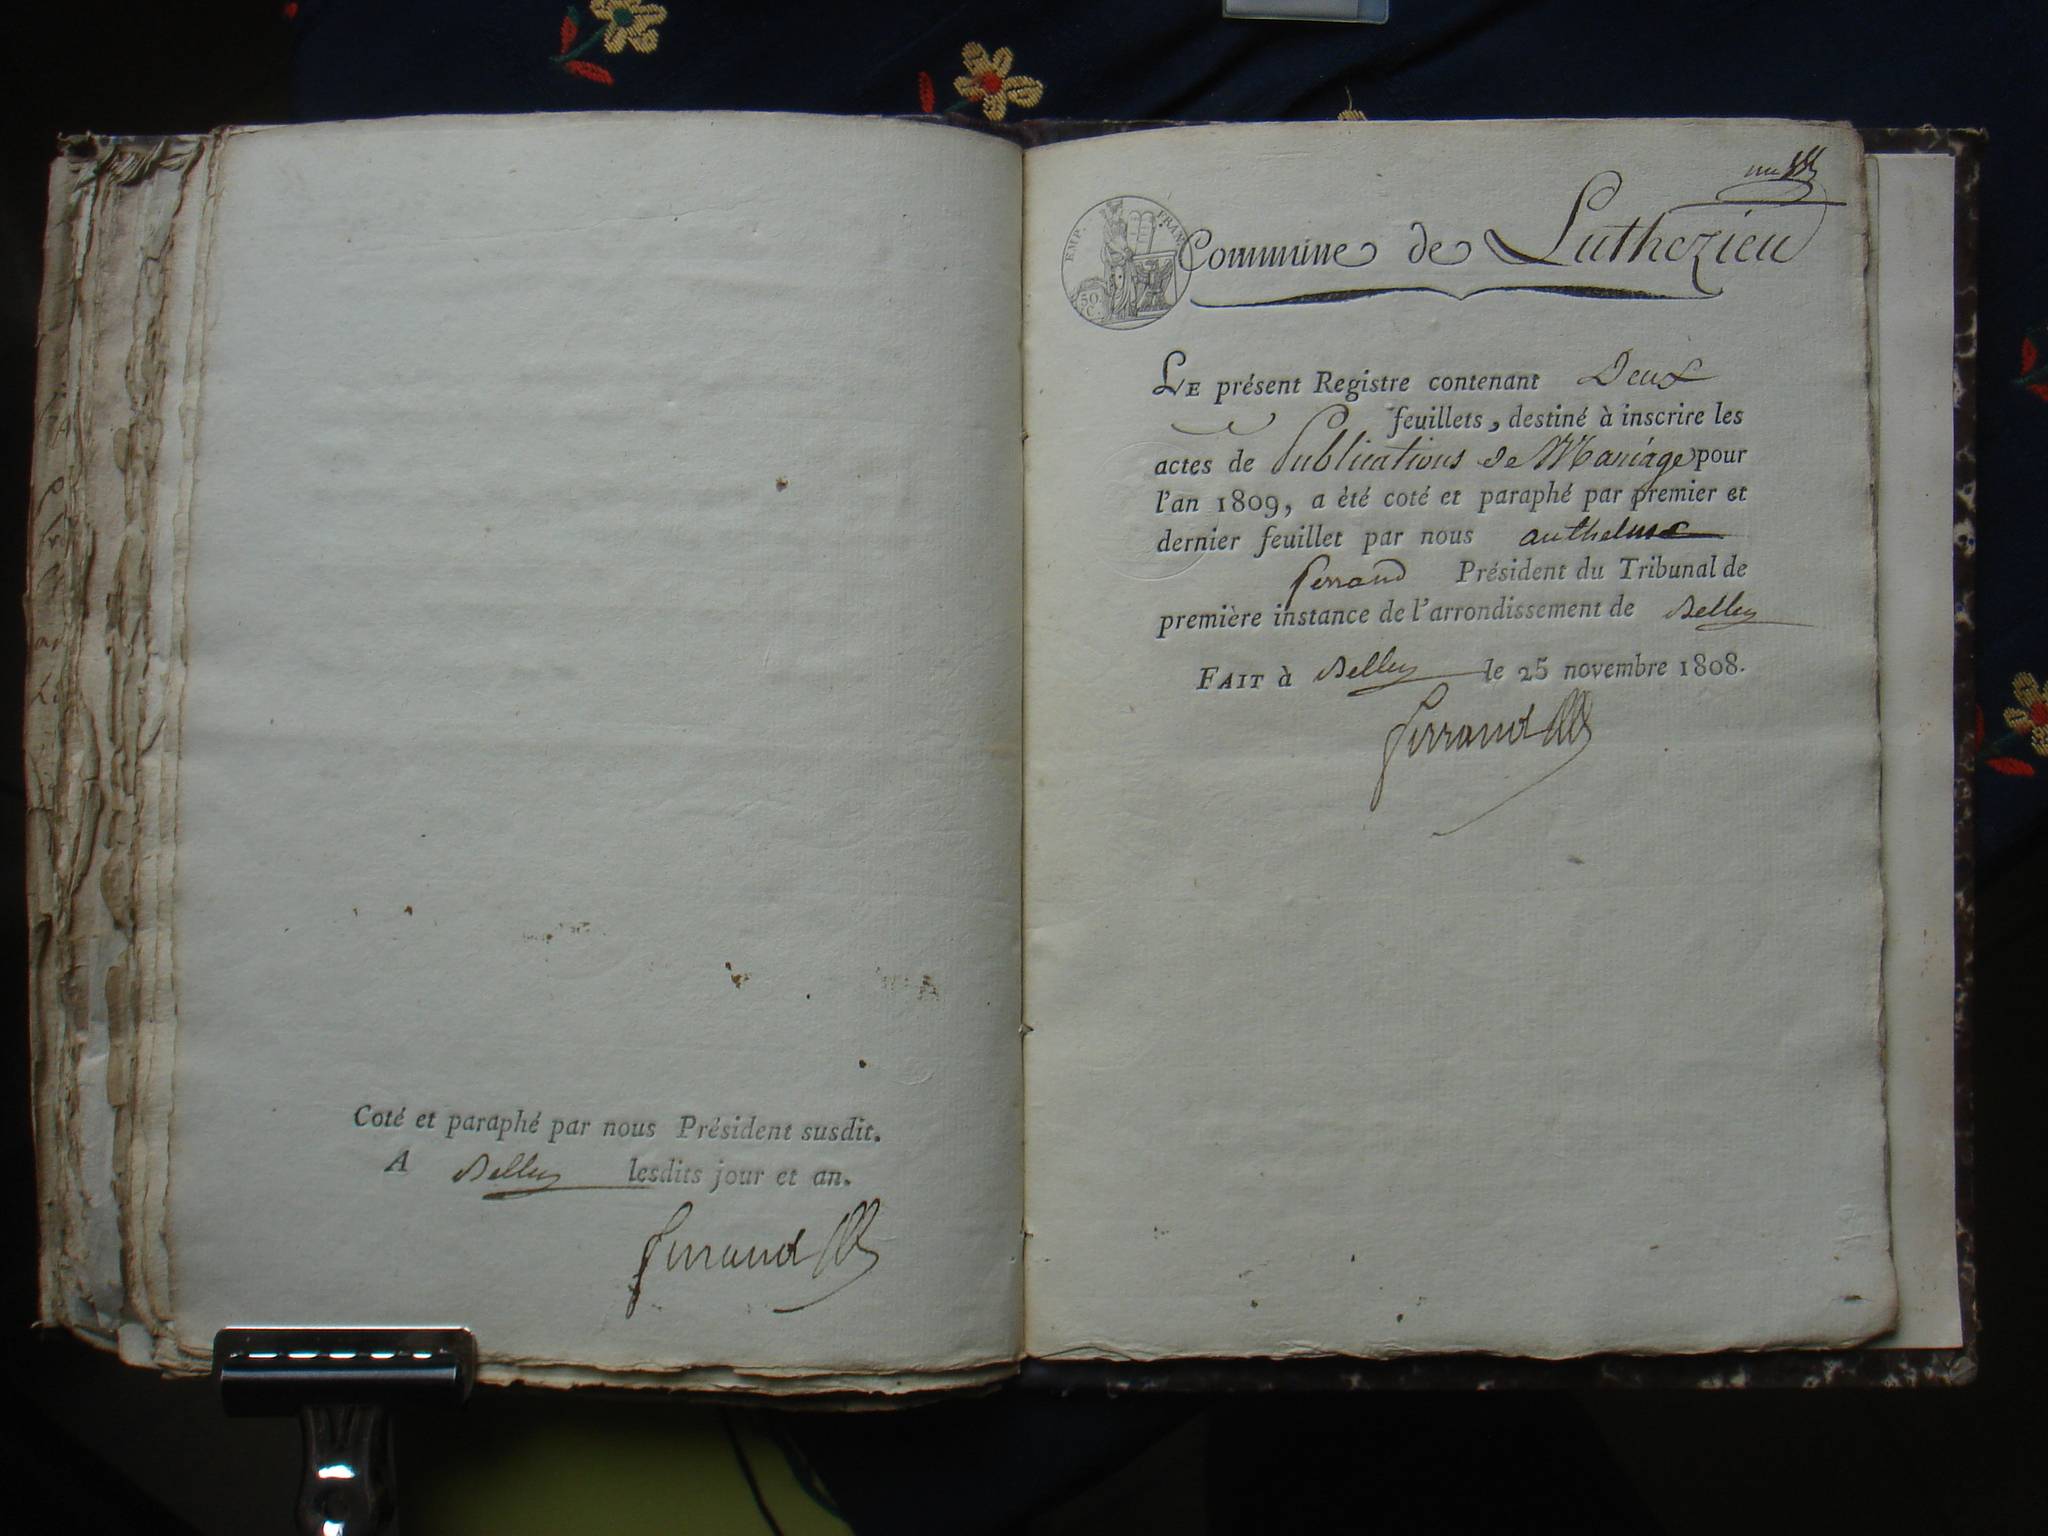 Coté et paraphé par nous Président susdit.
A Belley lesdits jour et an.
Ferrand
un
EMP. FRAN.
50
C.
Commune de Luthezieu
LE présent Registre contenant Deux
feuillets, destiné à inscrire les
actes de Publications de Mariage pour
l'an 1809, a été coté et paraphé par premier et
dernier feuillet par nous anthelme
ferrand Président du Tribunal de
première instance de l'arrondissement de Belley
FAIT à Belley le 25 novembre 1808.
Ferrand